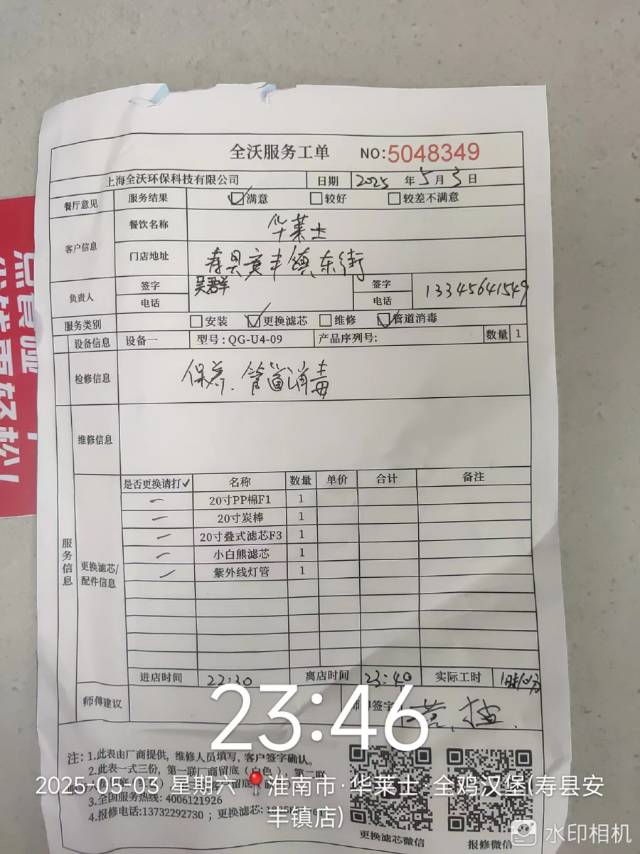 全沃服务工单 NO:5048349
上海全沃环保科技有限公司 日期 2025 年 5 月 3 日
餐厅意见 服务结果 满意 较好 较差不满意
客户信息 餐饮名称 华莱士
门店地址 寿县安丰镇东街
负责人 签字 签字
电话 电话 13345641549
服务类别 安装 更换滤芯 维修 管道消毒
设备信息 设备一 型号:QG-U4-09 产品序列号: 数量 1
检修信息 保养、管道消毒
维修信息
服务信息
更换滤芯/配件信息
是否更换请打✓ 名称 数量 单价 合计 备注
一 20寸PP棉F1 1
一 20寸炭棒 1
一 20寸叠式滤芯F3 1
一 小白熊滤芯 1
一 紫外线灯管 1
进店时间 22:30 离店时间 23:40 实际工时
师傅建议 签字
23:46
注: 1.此表由厂商提供, 维修人员填写, 客户签字确认。
2.此表一式三份, 第一联厂商留底
3.全国服务热线: 4006121926
4.报修电话:13732292730 ; 更换滤芯:
更换滤芯微信 报修微信
2025-05-03 星期六 淮南市·华莱士 全鸡汉堡(寿县安
丰镇店)
水印相机